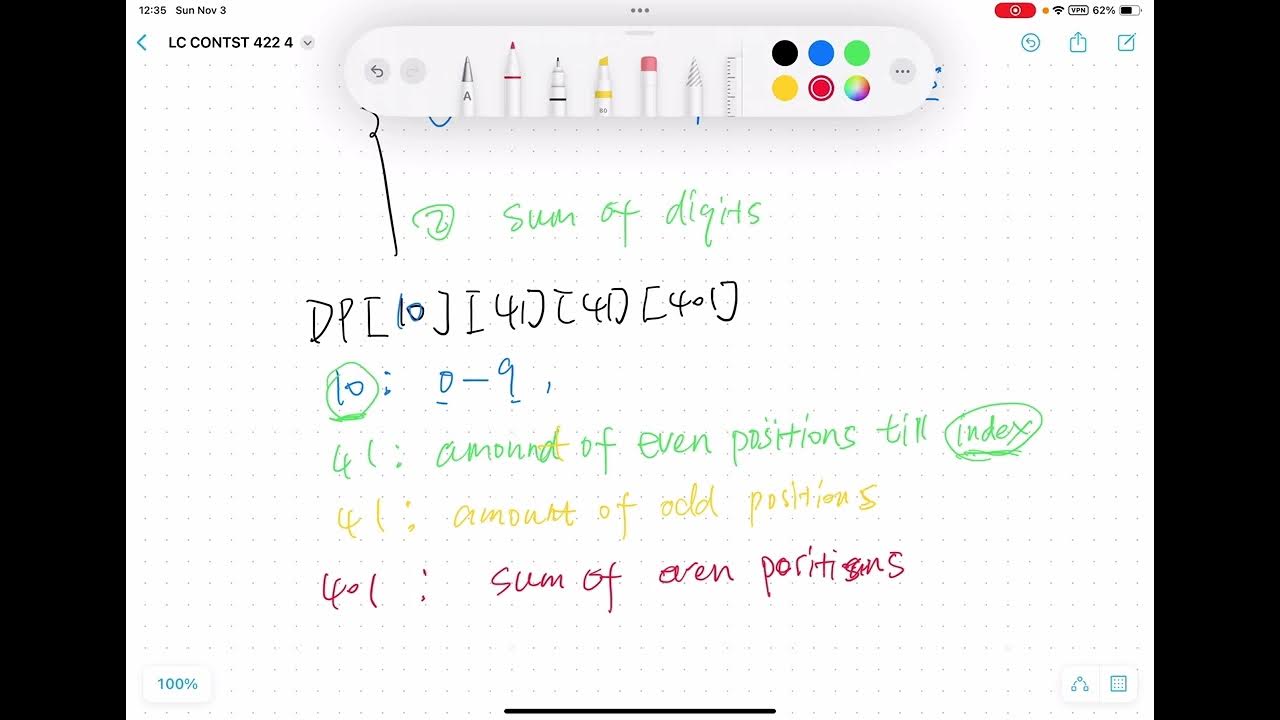 12:35 Sun Nov 3
VPN 62%
LC CONTST 422 4
A
80
② sum of digits
DP[10][41][41][401]
10: 0-9,
41: amount of even positions till index
41: amount of odd positions
401: sum of even positions
100%